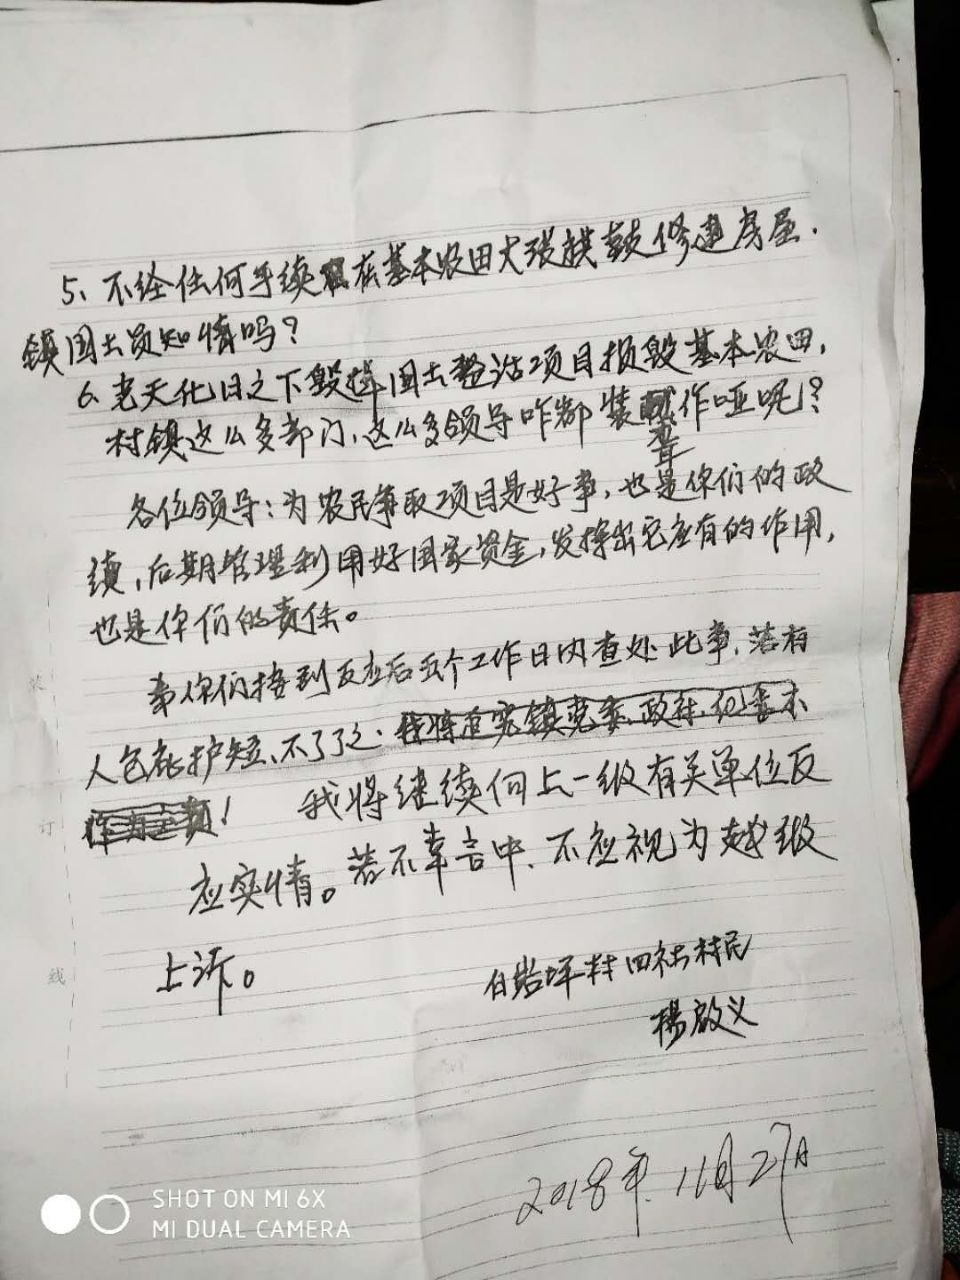 5、不经任何手续在基本农田大张旗鼓修建房屋.
镇国土员知情吗？
6、光天化日之下毁掉国土整治项目损毁基本农田，
村镇这么多部门，这么多领导咋都装聋作哑呢！？
各位领导：为农民争取项目是好事，也是你们的政
绩，后期管理利用好国家资金，发挥出它应有的作用，
也是你们的责任。
你们接到反应后五个工作日内查处此事，若有
人包庇护短、不了了之.
！ 我将继续向上一级有关单位反
应实情。若不幸言中、不应视为越级
上诉。
白岩坪村四社村民
杨启义
2018年.11月27日
装
订
线
SHOT ON MI 6X
MI DUAL CAMERA